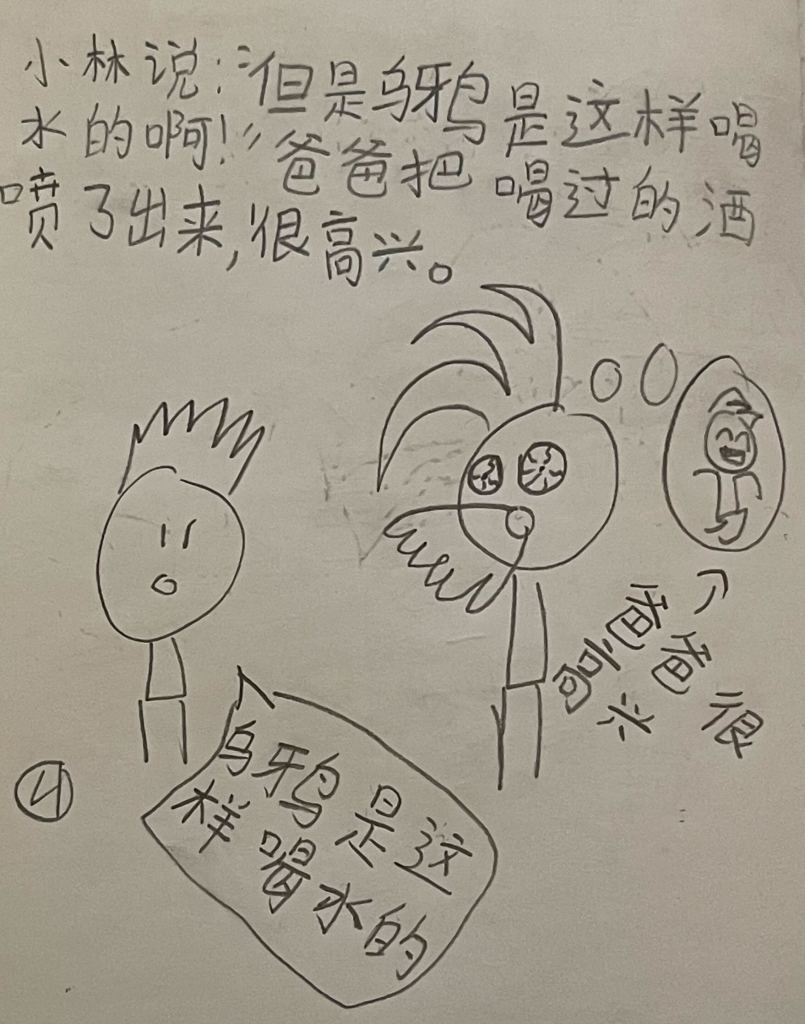 小林说:“但是乌鸦是这样喝
水的啊!”爸爸把喝过的洒
喷了出来,很高兴。
爸爸很
高兴
乌鸦是这
样喝水的
4